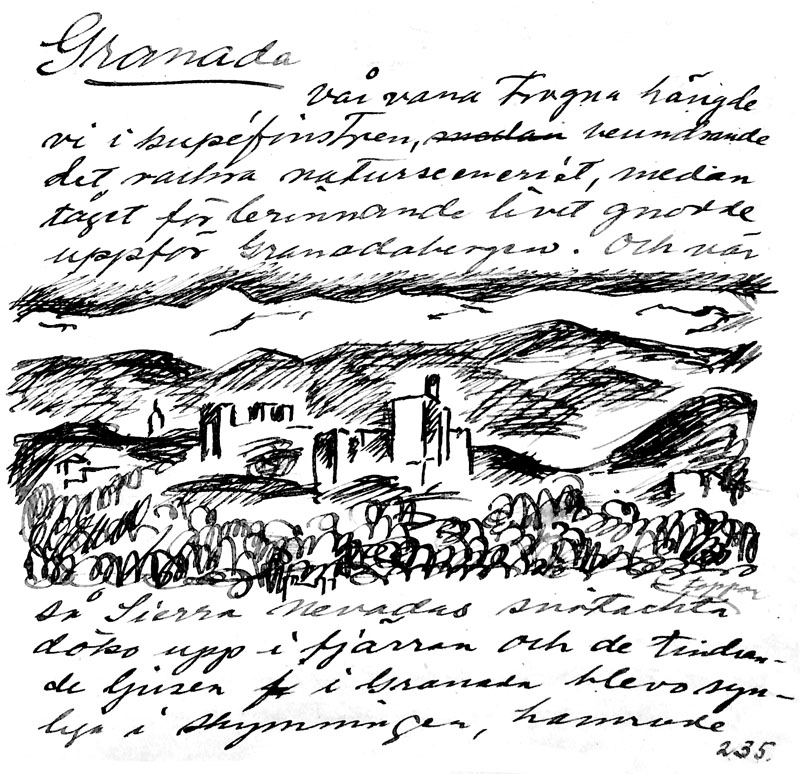 Granada
vår vana trogna hängde
vi i kupéfönstren, medan beundrande
det vackra natursceneriet, medan
tåget för brinnande livet gnodde
uppför Granadabergen. Och när
så Sierra Nevadas snötäckta
döko upp i fjärran och de tindran-
de ljusen i Granada blevo syn-
liga i skymningen, hamrade
235.